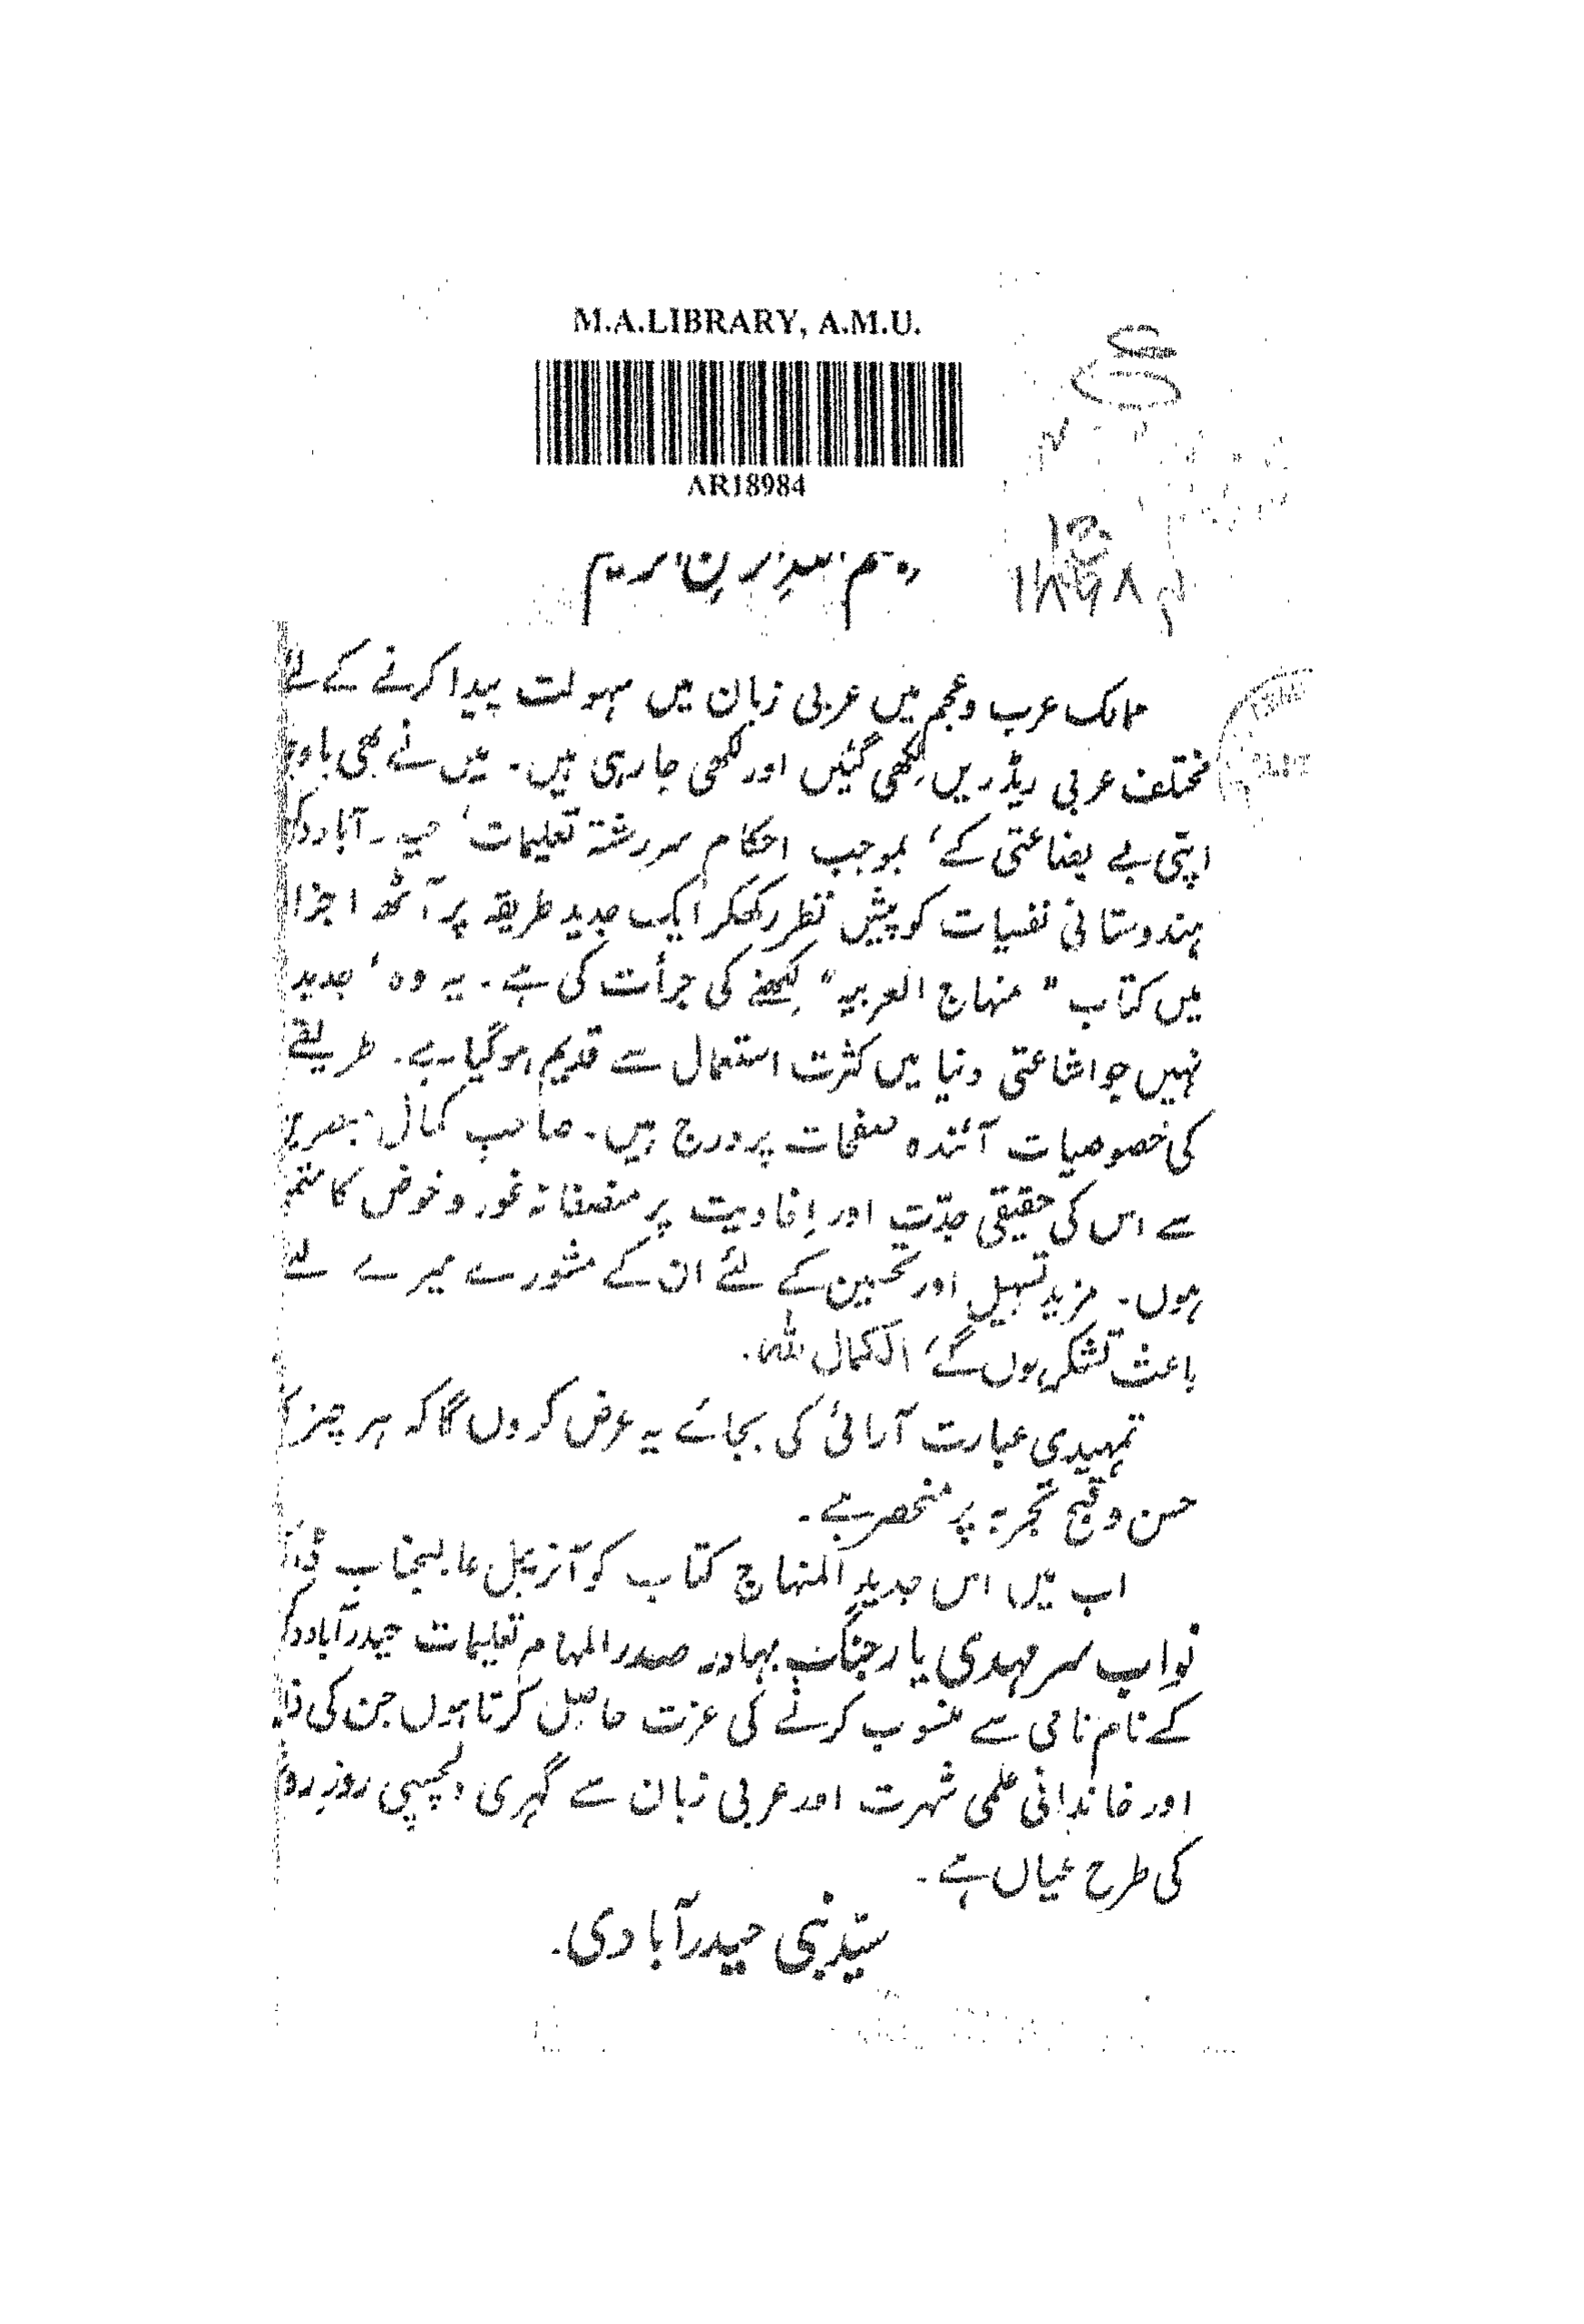 M.A.LIBRARY, A.M.U.
AR18984
۱۸۹۸۴
ممالک عرب وعجم میں عربی زبان میں سہولت پیدا کرنے کے لئے
مختلف عربی ریڈریں لکھی گئیں اور لکھی جا رہی ہیں۔ میں نے بھی
اپنی بے بضاعتی کے، بموجب احکام سررشتۂ تعلیمات، حیدرآباد
ہندوستانی نفسیات کو پیش نظر رکھکر ایک جدید طریقہ پر آٹھ اجزا
میں کتاب "منہاج العربیہ" لکھنے کی جرأت کی ہے۔ یہ وہ، جدید
نہیں جو اشاعتی دنیا میں کثرت استعمال سے قدیم ہوگیا ہے۔ طریقے
کی خصوصیات آئندہ صفحات پر درج ہیں۔ صاحب کمال مبصرین
سے اس کی حقیقی جدّت اور اِفادیت پر منصفانہ غور و خوض کا
ہوں۔ مزید تسہیل اور تحسین کے لئے ان کے مشورے میرے لئے
باعث تشکر ہوں گے، الکمال للہ۔
تمہیدی عبارت آرائی کی بجائے یہ عرض کروں گا کہ ہر چیز کا
حسن و قبح تجربہ پر منحصر ہے۔
اب میں اس جدیدِ المنہاج کتاب کو آنریبل عالیجناب
نواب سر مہدی یار جنگ بہادر صدر المہام تعلیمات حیدرآباد
کے نام نامی سے منسوب کرنے کی عزت حاصل کرتا ہوں جن کی
اور خاندانی علمی شہرت اور عربی زبان سے گہری دلچسپی روزِ
کی طرح عیاں ہے۔
سیّد نبی حیدرآبادی۔